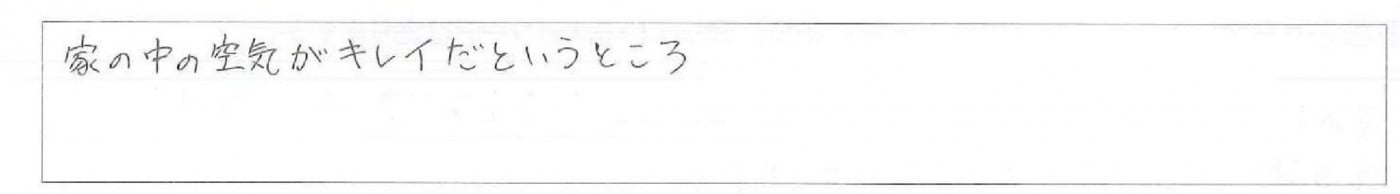 家の中の空気がキレイだというところ